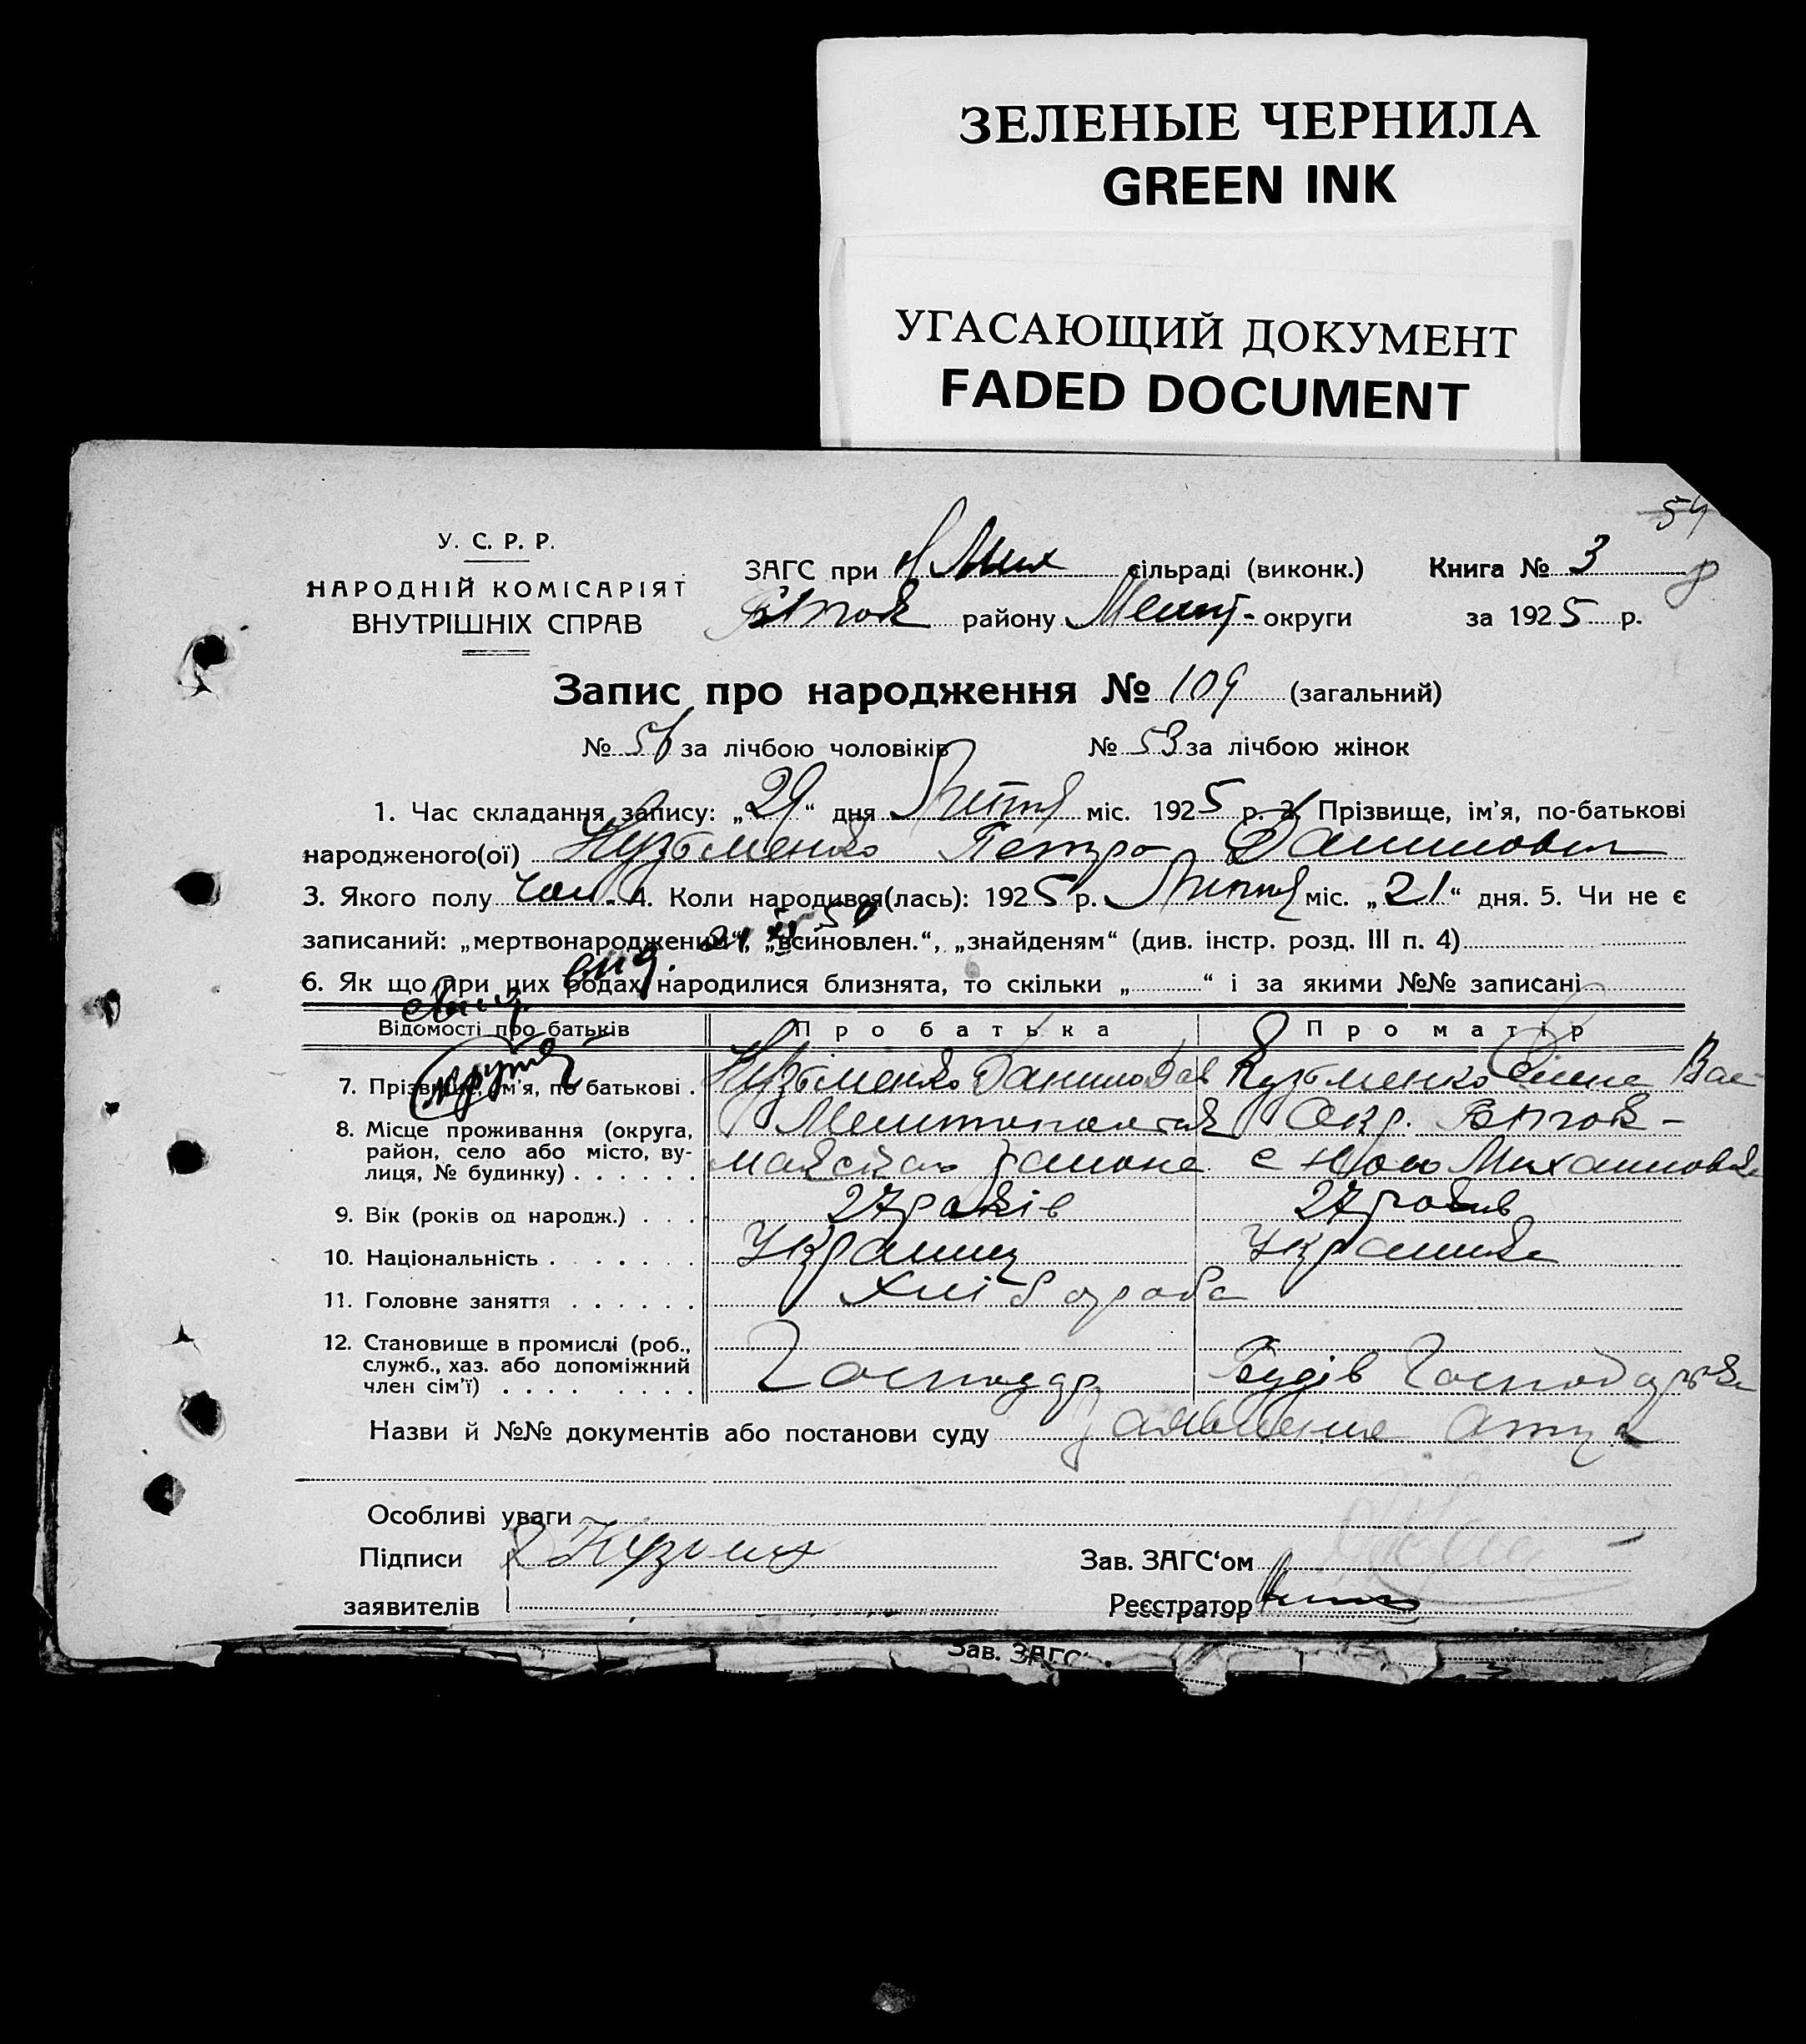 ЗЕЛЕНЫЕ ЧЕРНИЛА
GREEN INK
УГАСАЮЩИЙ ДОКУМЕНТ
FADED DOCUMENT
54
У. С. Р. Р.
НАРОДНІЙ КОМІСАРІЯТ
ВНУТРІШНІХ СПРАВ
ЗАГС при Н Мих сільраді (виконк.) Книга № 3
району Меліт- округи за 1925 р.
Запис про народження № 109 (загальний)
№ 56 за лічбою чоловіків № 53 за лічбою жінок
1. Час складання запису: „29“ дня Липня міс. 1925 р. 2. Прізвище, ім'я, по-батькові
народженого(ої) Кузьменко Петро Данилович
3. Якого полу чол. 4. Коли народився(лась): 1925 р. Липня міс. „21“ дня. 5. Чи не є
записаний: „мертвонароджений“, „всиновлен.“, „знайденям“ (див. інстр. розд. III п. 4)
6. Як що при цих родах народилися близнята, то скільки „ “ і за якими №№ записані
Відомості про батьків Про батька Про матір
7. Прізвище, ім'я, по батькові . Кузьменко Данило Кузьменко Вас
8. Місце проживання (округа, район, село або місто, вулиця, № будинку) . . . . . . Окр.
району с Ново Михаиловка
9. Вік (років од народж.) . . . 27 років 27 років
10. Національність . . . . . . . Украинц Украинка
11. Головне заняття . . . . . . Хлібороба
12. Становище в промислі (роб., служб., хаз. або допоміжний член сім'ї) . . . . . . . . Господар Господарка
Назви й №№ документів або постанови суду заявление отца
Особливі уваги
Підписи Зав. ЗАГС'ом
заявителів Реєстратор
Зав. ЗАГС